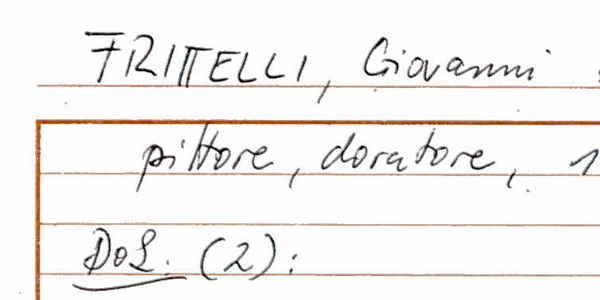 FRITTELLI, Giovanni
pittore, doratore, 1
DOL. (2):